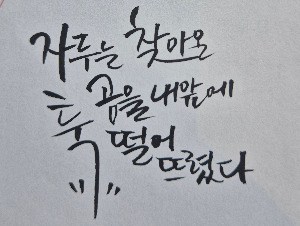 자두는 찾아온
공을 내앞에
툭 떨어
뜨렸다